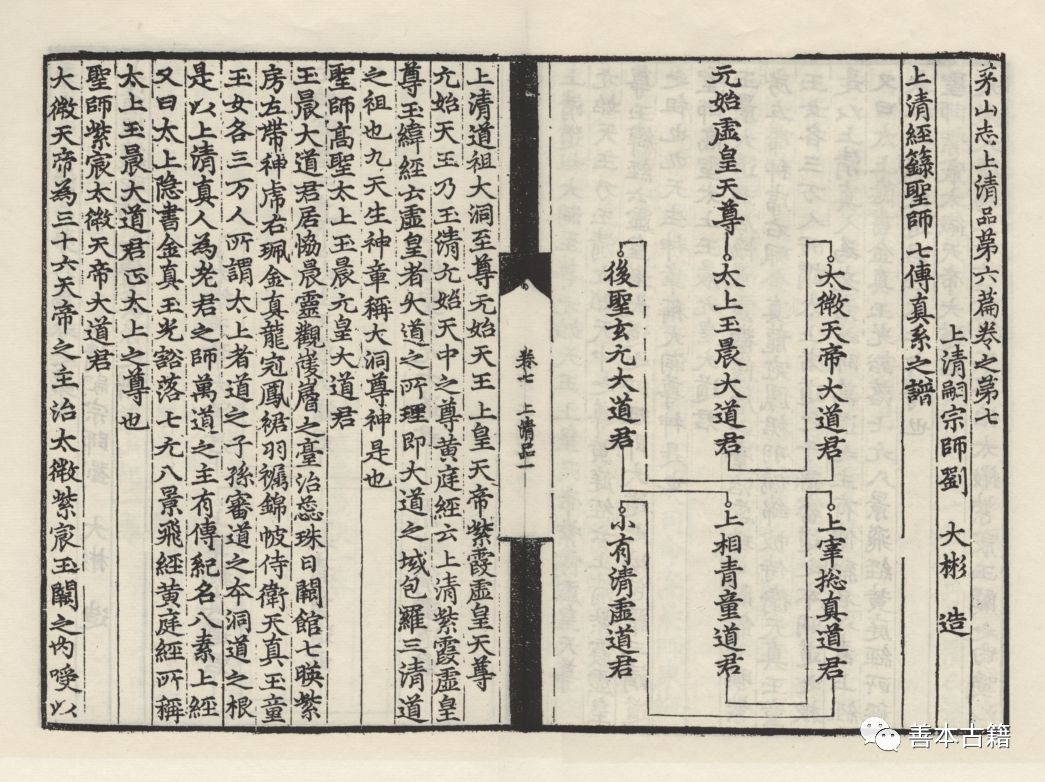 茅山志上清品苐六篇卷之苐七
上清嗣宗師劉 大彬 造
上清經籙聖師七傳真系之譜
太微天帝大道君
上宰揔真道君
太上玉晨大道君
上相青童道君
元始虛皇天尊
後聖玄元大道君
小有清虛道君
卷七 上清品一
上清道祖大洞至尊元始天王 上皇天帝紫霞虛皇天尊
元始天王乃玉清元始天中之尊黃庭經云上清紫霞虛皇
尊玉緯經云虛皇者大道之所理即大道之域包羅三清道
之祖也九天生神章稱大洞尊神是也
聖師高聖太上玉晨元皇大道君
玉晨大道君居協晨靈觀㟅層之臺治蕊珠日闕館七暎紫
房左帶神虎右珮金真龍冠鳳裙羽襡錦帔侍衛天真玉童
玉女各三万人所謂太上者道之子孫審道之夲洞道之根
是以上清真人為老君之師萬道之主有傳紀名八素上經
又曰太上隐書金真玉光豁落七元八景飛經黃庭經所稱
太上玉晨大道君正太上之尊也
聖師紫宸太微天帝大道君
大微天帝為三十六天帝之主治太微紫宸玉闕之內受以
善本古籍